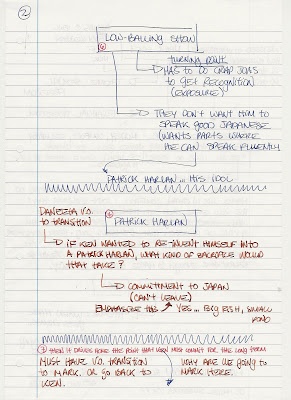 2
LOW-BALLING SHOW
6
TURNING POINT
HAS TO DO CRAP JOBS
TO GET RECOGNITION
(EXPOSURE)
THEY DON'T WANT HIM TO
SPEAK GOOD JAPANESE
(WANTS PARTS WHERE
HE CAN SPEAK FLUENTLY
PATRICK HARLAN... HIS IDOL
V.O.
TO TRANSITION
PATRICK HARLAN
IF KEN WANTED TO RE-INVENT HIMSELF INTO
A PATRICK HARLAN, WHAT KIND OF WOULD
THAT TAKE?
COMMITMENT TO JAPAN
(CAN'T LEAVE)
EMPHASIZE THIS YES... BIG FISH, SMALL
POND
THEN IT DRIVES HOME THE POINT THAT KEN MUST COMMIT FOR THE LONG TERM
MUST HAVE V.O. TRANSITION
TO MARK. OR GO BACK TO
KEN.
WHY ARE WE GOING TO
MARK HERE.